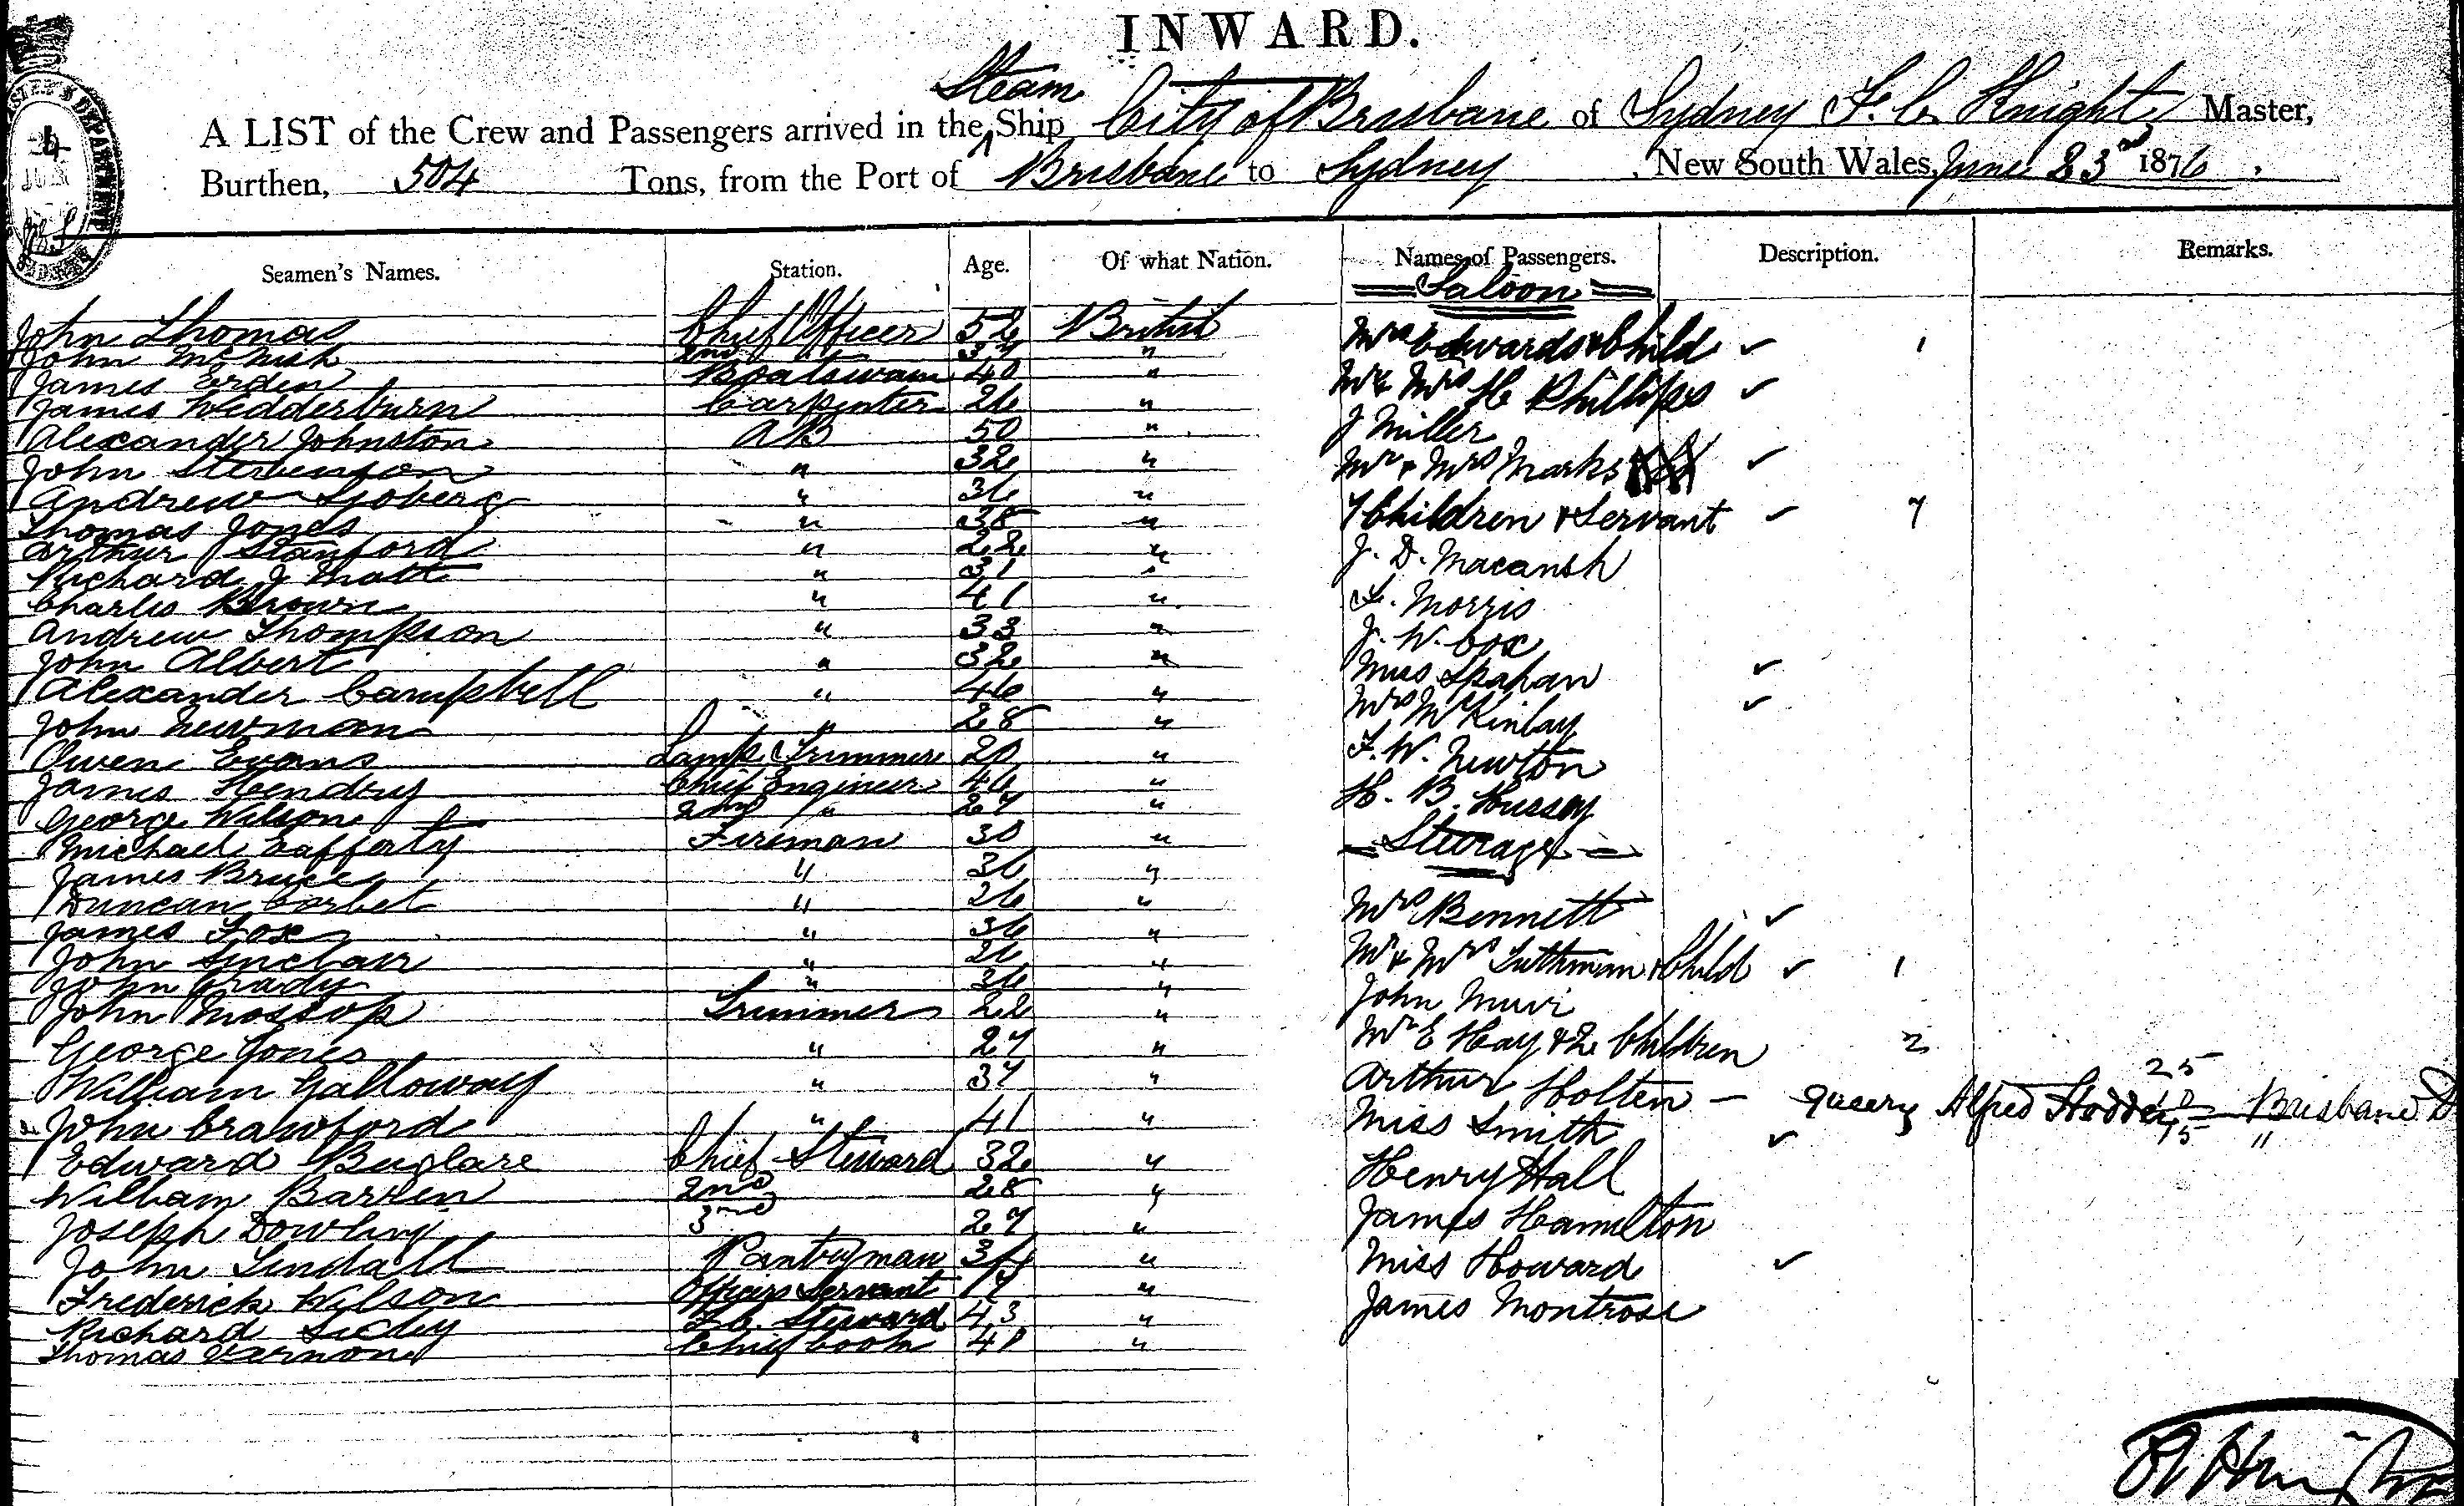 INWARD.
Steam
A LIST of the Crew and Passengers arrived in the ^ Ship City of Brisbane of Sydney F. C. Knight Master,
Burthen, 504 Tons, from the Port of Brisbane to Sydney, New South Wales, June 23rd 1876.
Seamen's Names. Station. Age. Of what Nation. Names of Passengers. Description. Remarks.
Saloon
John Thomas Chief Officer 52 British Mrs Edwards & Child ✓ 1
John McNish 2nd 37 "
James Boatswain 40 " Mr & Mrs H Phillips ✓
James Wedderburn Carpenter 26 "
Alexander Johnston AB 50 " J Miller
John Stevenson " 32 " Mr & Mrs Marks ✓
Andrew Sjoberg " 36 "
Thomas Jones " 38 " 7 Children & Servant ✓ 7
Arthur Stanford " 22 " J. D. Macansh
Richard J Matt " 31 "
Charles Brown " 41 " Morris
Andrew Thompson " 33 " J. W. Cox
John Albert " 32 " Miss Spahan ✓
Alexander Campbell " 46 " Mrs McKinlay ✓
John Newman " 28 "
Owen Evans Lamp Trimmer 20 " F. W. Newton
James Hendry Chief Engineer 46 " H. B. Hussey
George Wilson 2nd " 27 "
Michael Lafferty Fireman 30 " Steerage
James Bruce " 36 "
Duncan Corbet " 26 " Mrs Bennett ✓
James Fox " 36 "
John Sinclair " 26 " Mr & Mrs Luthman & Child ✓ 1
John Grady " 36 "
John Mossop Trimmer 22 " John Muir
George Jones " 27 " Mr E Hay & 2 Children 2
William Galloway " 37 " Arthur Holten — query Alfred Hodder Brisbane
25
15 "
John Crawford " 41 " Miss Smith ✓
Edward Buglare Chief Steward 32 " Henry Hall
William Barren 2nd 28 "
Joseph Dowling 3rd 27 " James Hamilton
John Tindall Pantryman 34 " Miss Howard ✓
Frederick Wilson Officers Servant 17 "
Richard Steward 43 " James Montrose
Thomas Varnon Chief Cook 40 "